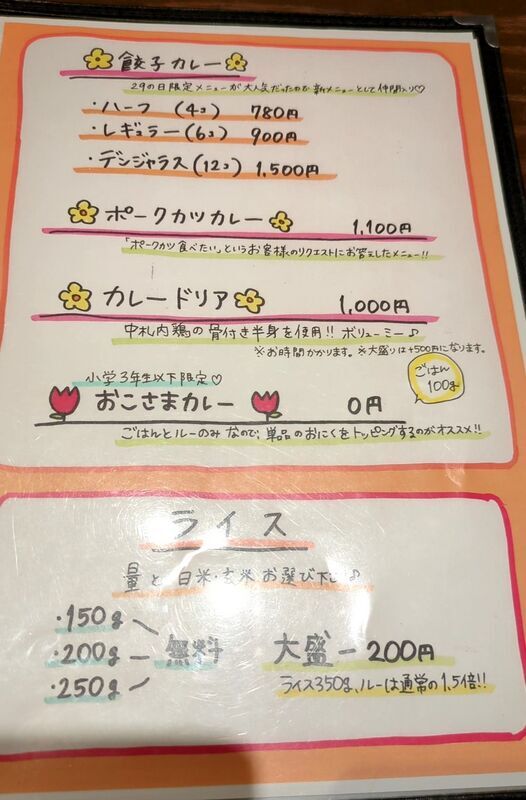 餃子カレー
29の日限定メニューが大人気だったので新メニューとして仲間入り♡
・ハーフ (4コ) 780円
・レギュラー(6コ) 900円
・デンジャラス(12コ) 1,500円
ポークカツカレー 1,100円
「ポークカツ食べたい」というお客様のリクエストにお答えしたメニュー!!
カレードリア 1,000円
中札内鶏の骨付き半身を使用!! ボリューミー♪
※お時間かかります。※大盛りは+500円になります。
小学3年生以下限定♡
おこさまカレー 0円
ごはん
100g
ごはんとルーのみなので、単品のおにくをトッピングするのがオススメ!!
ライス
量と白米・玄米お選び下さい♪
・150g
・200g 無料
・250g
大盛-200円
ライス350g、ルーは通常の1.5倍!!